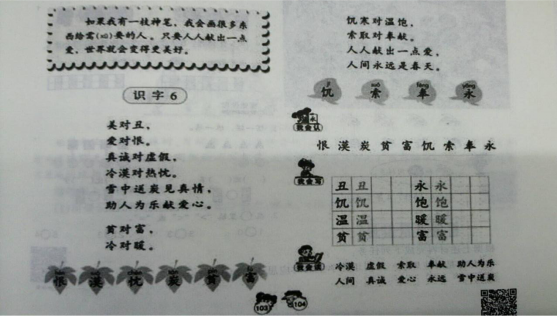 如果我有一枝神笔，我会画很多东
西给需(xū)要的人。只要人人献出一点
爱，世界就会变得更美好。
识字6
美对丑，
爱对恨。
真诚对虚假，
冷漠对热忱。
雪中送炭见真情，
助人为乐献爱心。
贫对富，
冷对暖。
恨 漠 忱 炭 贫 富
103
饥寒对温饱，
索取对奉献。
人人献出一点爱，
人间永远是春天。
饥 索 奉 永
我会认
恨 漠 炭 贫 富 饥 索 奉 永
我会写
丑 丑 永 永
饥 饥 饱 饱
温 温 暖 暖
贫 贫 富 富
我会读
冷漠 虚假 索取 奉献 助人为乐
人间 真诚 爱心 永远 雪中送炭
104